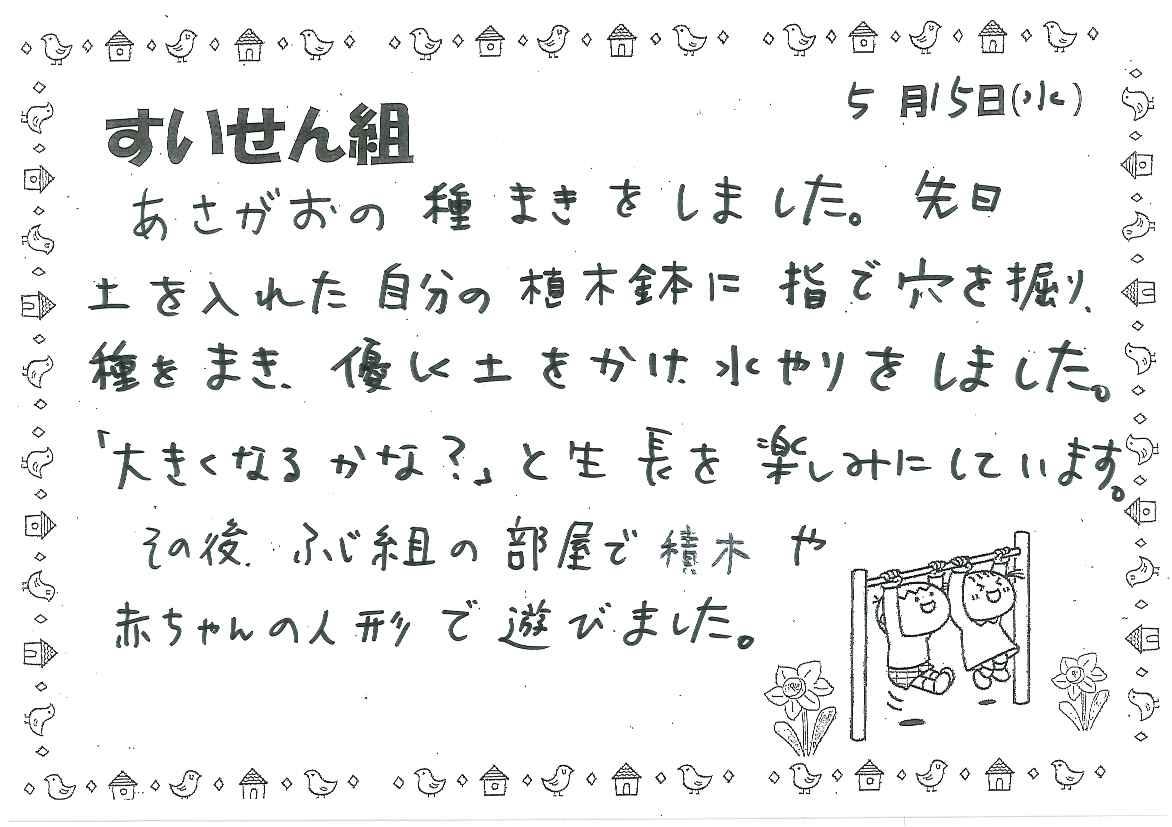 5月15日(水)
すいせん組
あさがおの種まきをしました。先日
土を入れた自分の植木鉢に指で穴を掘り、
種をまき、優しく土をかけ、水やりをしました。
「大きくなるかな?」と生長を楽しみにしています。
その後、ふじ組の部屋で積木や
赤ちゃんの人形で遊びました。